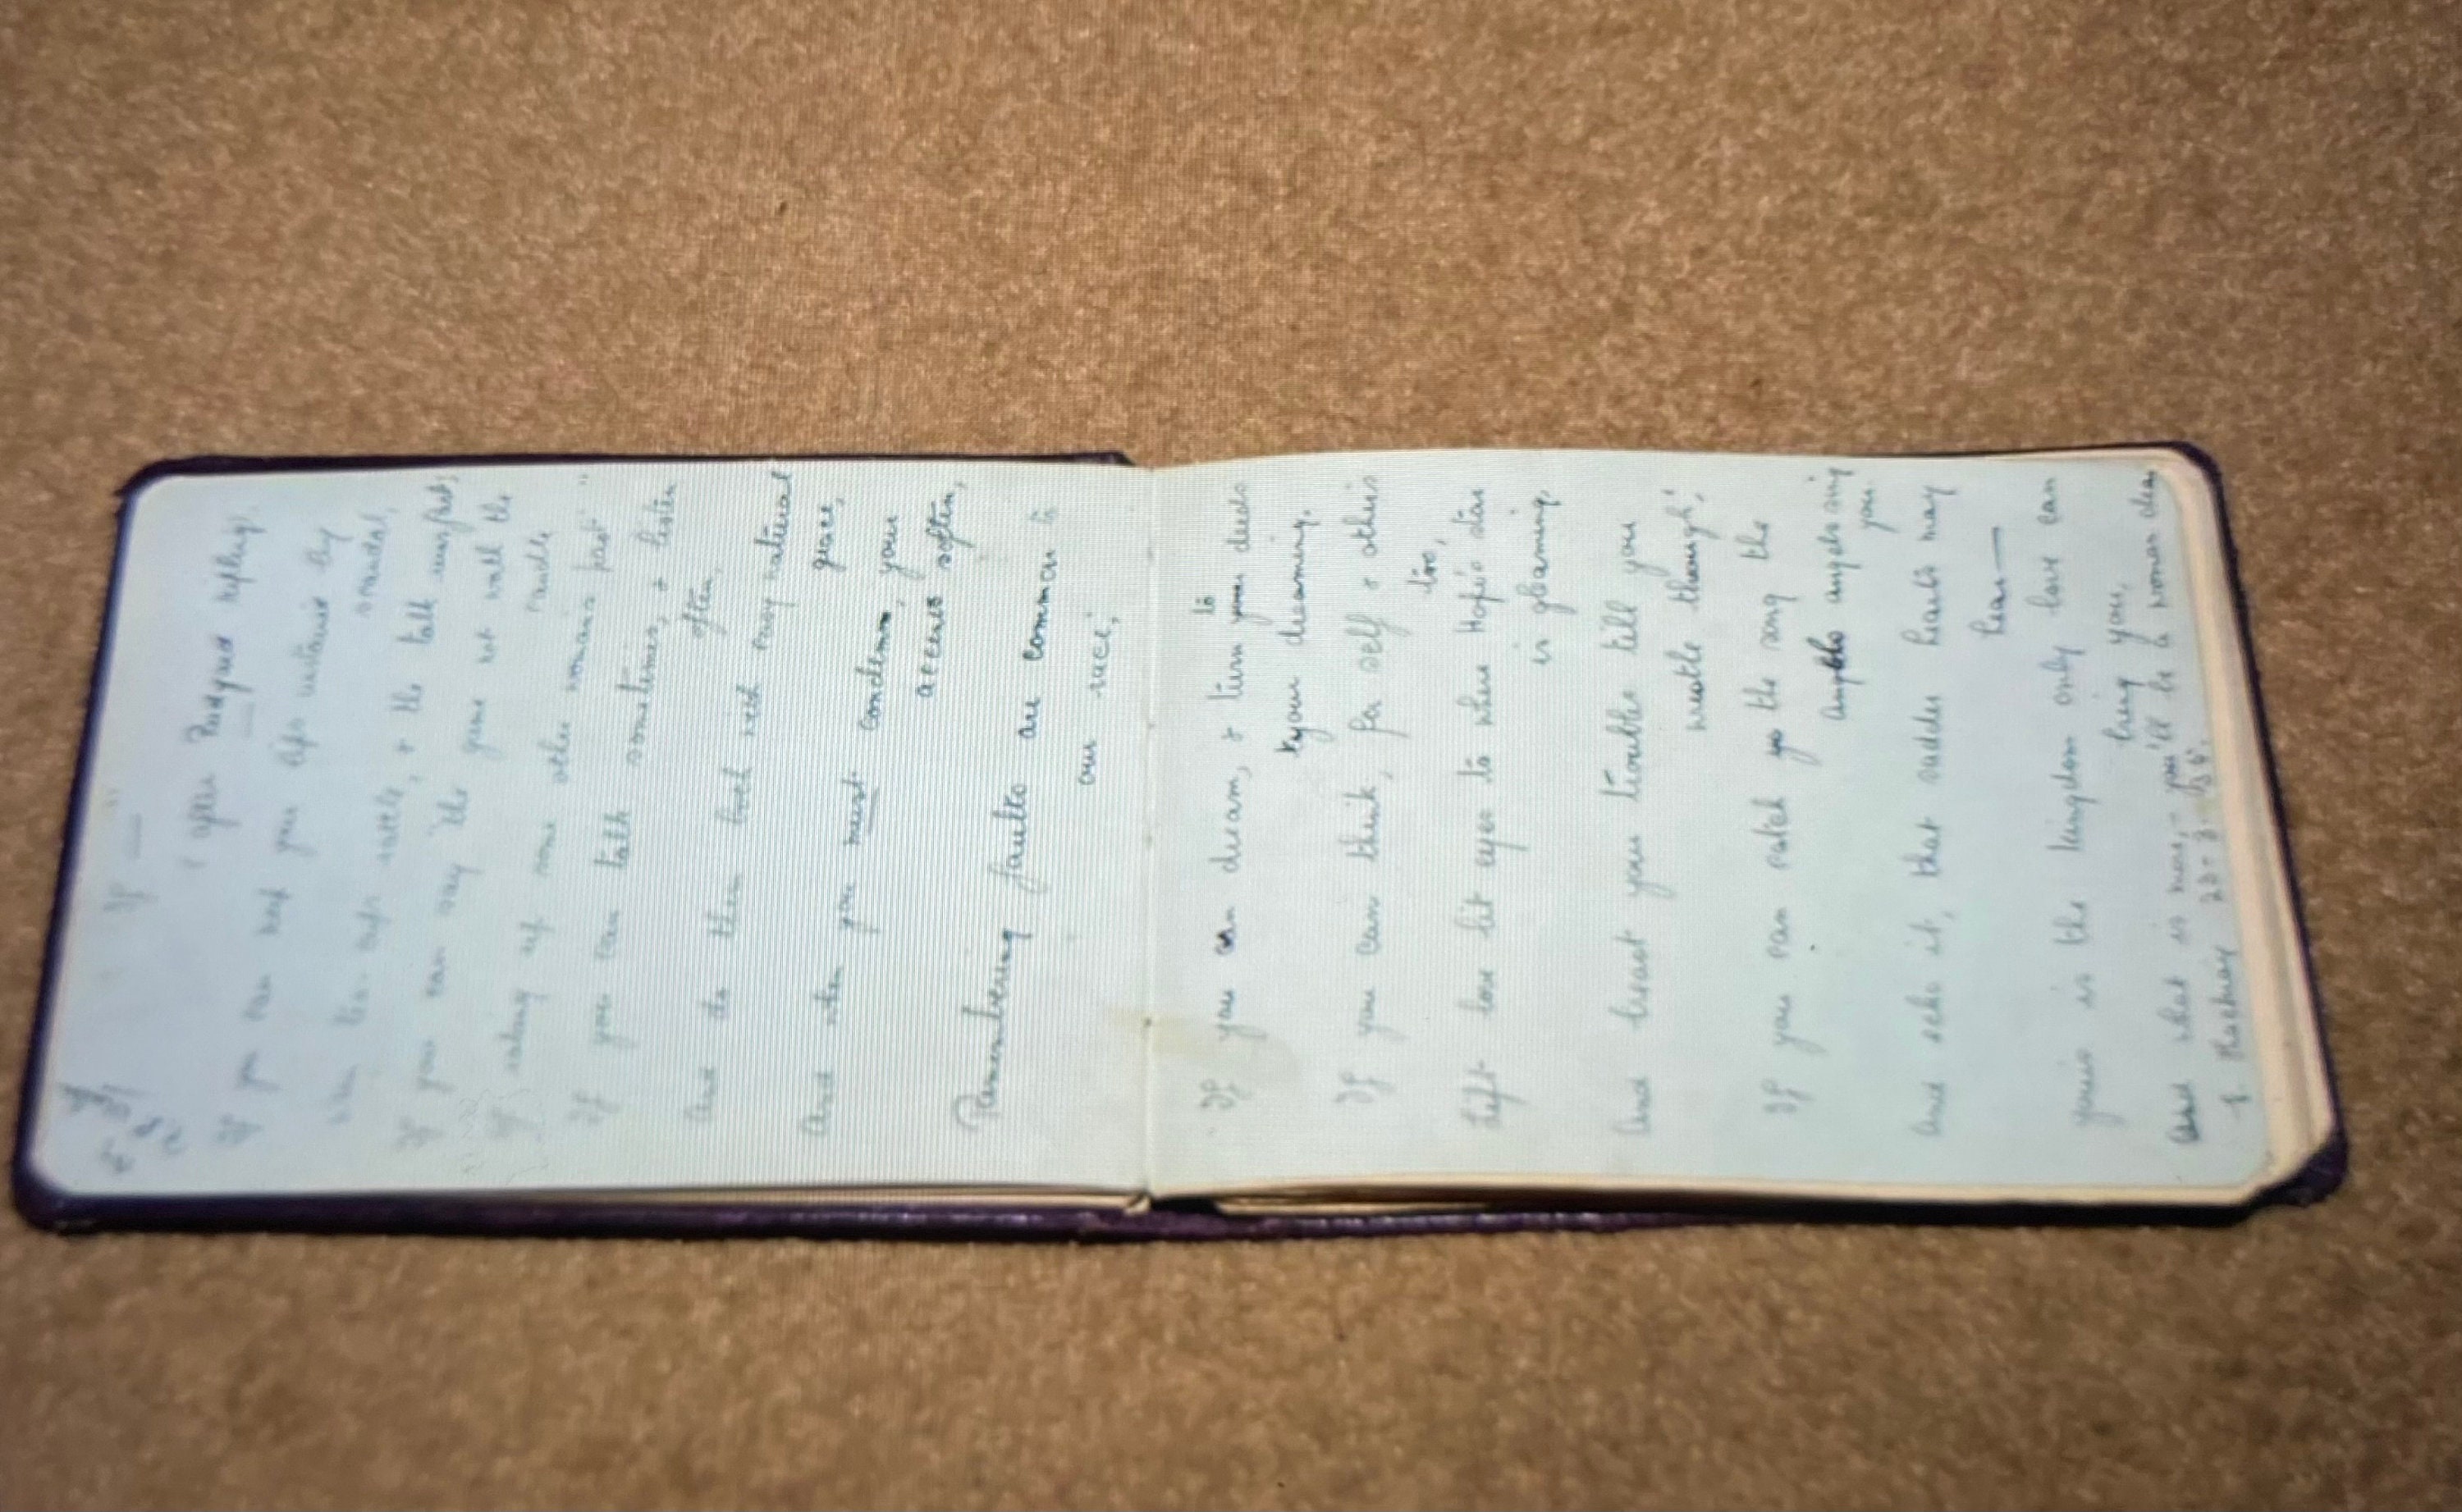 If —
(after Rudyard Kipling).
If you can keep your lips unstained by
scandal,
When tea-cups rattle, & the talk runs fast;
If you can say "the game's not worth the
candle
Of raking up some other woman's past"
If you can talk sometimes, & listen
often,
And do them both with easy natural
grace,
And when you must condemn, your
accents soften,
Remembering faults are common to
our race;
If you can dream, & turn your deeds to
your dreaming.
If you can think, for self & others
too,
Lift love lit eyes to where Hope's star
is gleaming,
And breast your troubles till you
wrestle through;
If you can catch the song the
angels sing
you
And echo it, that sadder hearts may
hear—
Yours is the kingdom only love can
bring you,
And what is more, - you'll be a woman dear